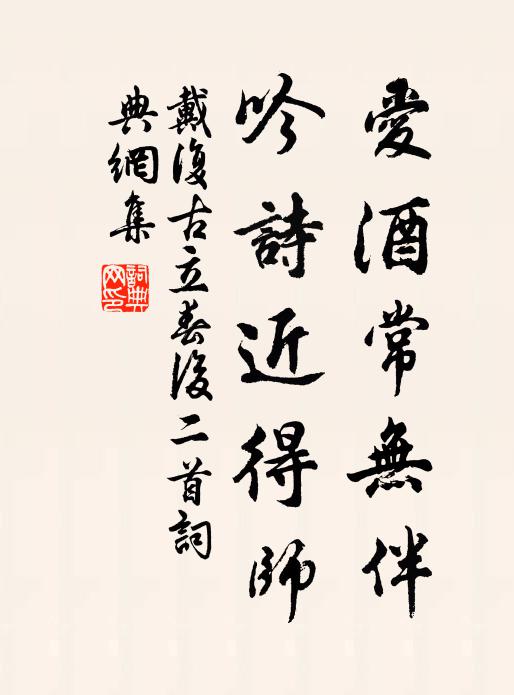 愛酒常無伴
吟詩近得師
戴復古立春後二首詞
典網集
詞典网印